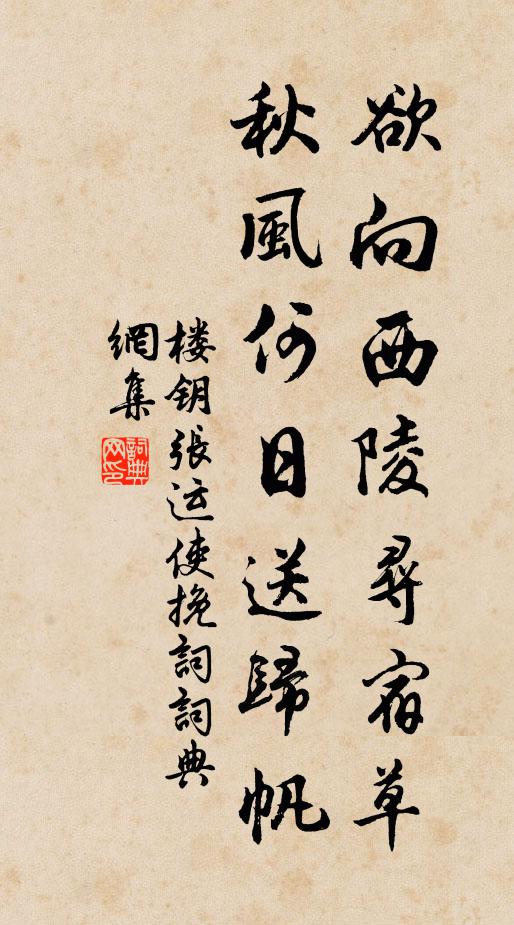 欲向西陵尋宿草
秋風何日送歸帆
楼钥張运使挽詞詞典
網集
詞典
网印